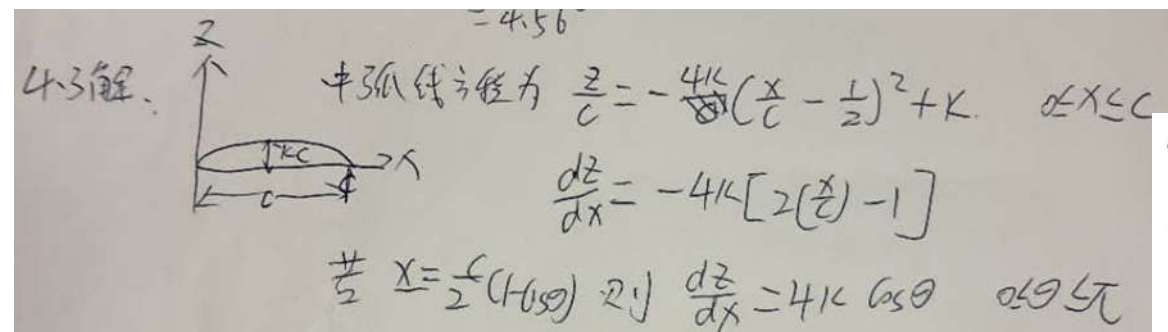 = 4.56°
4.3解.
Z
中弧线方程为 z/c = -4k(x/c - 1/2)² + k. 0≤x≤c
kc
x
c
dz/dx = -4k[2(x/c) - 1]
若 x = c/2(1-cosθ) 则 dz/dx = 4k cosθ 0≤θ≤π